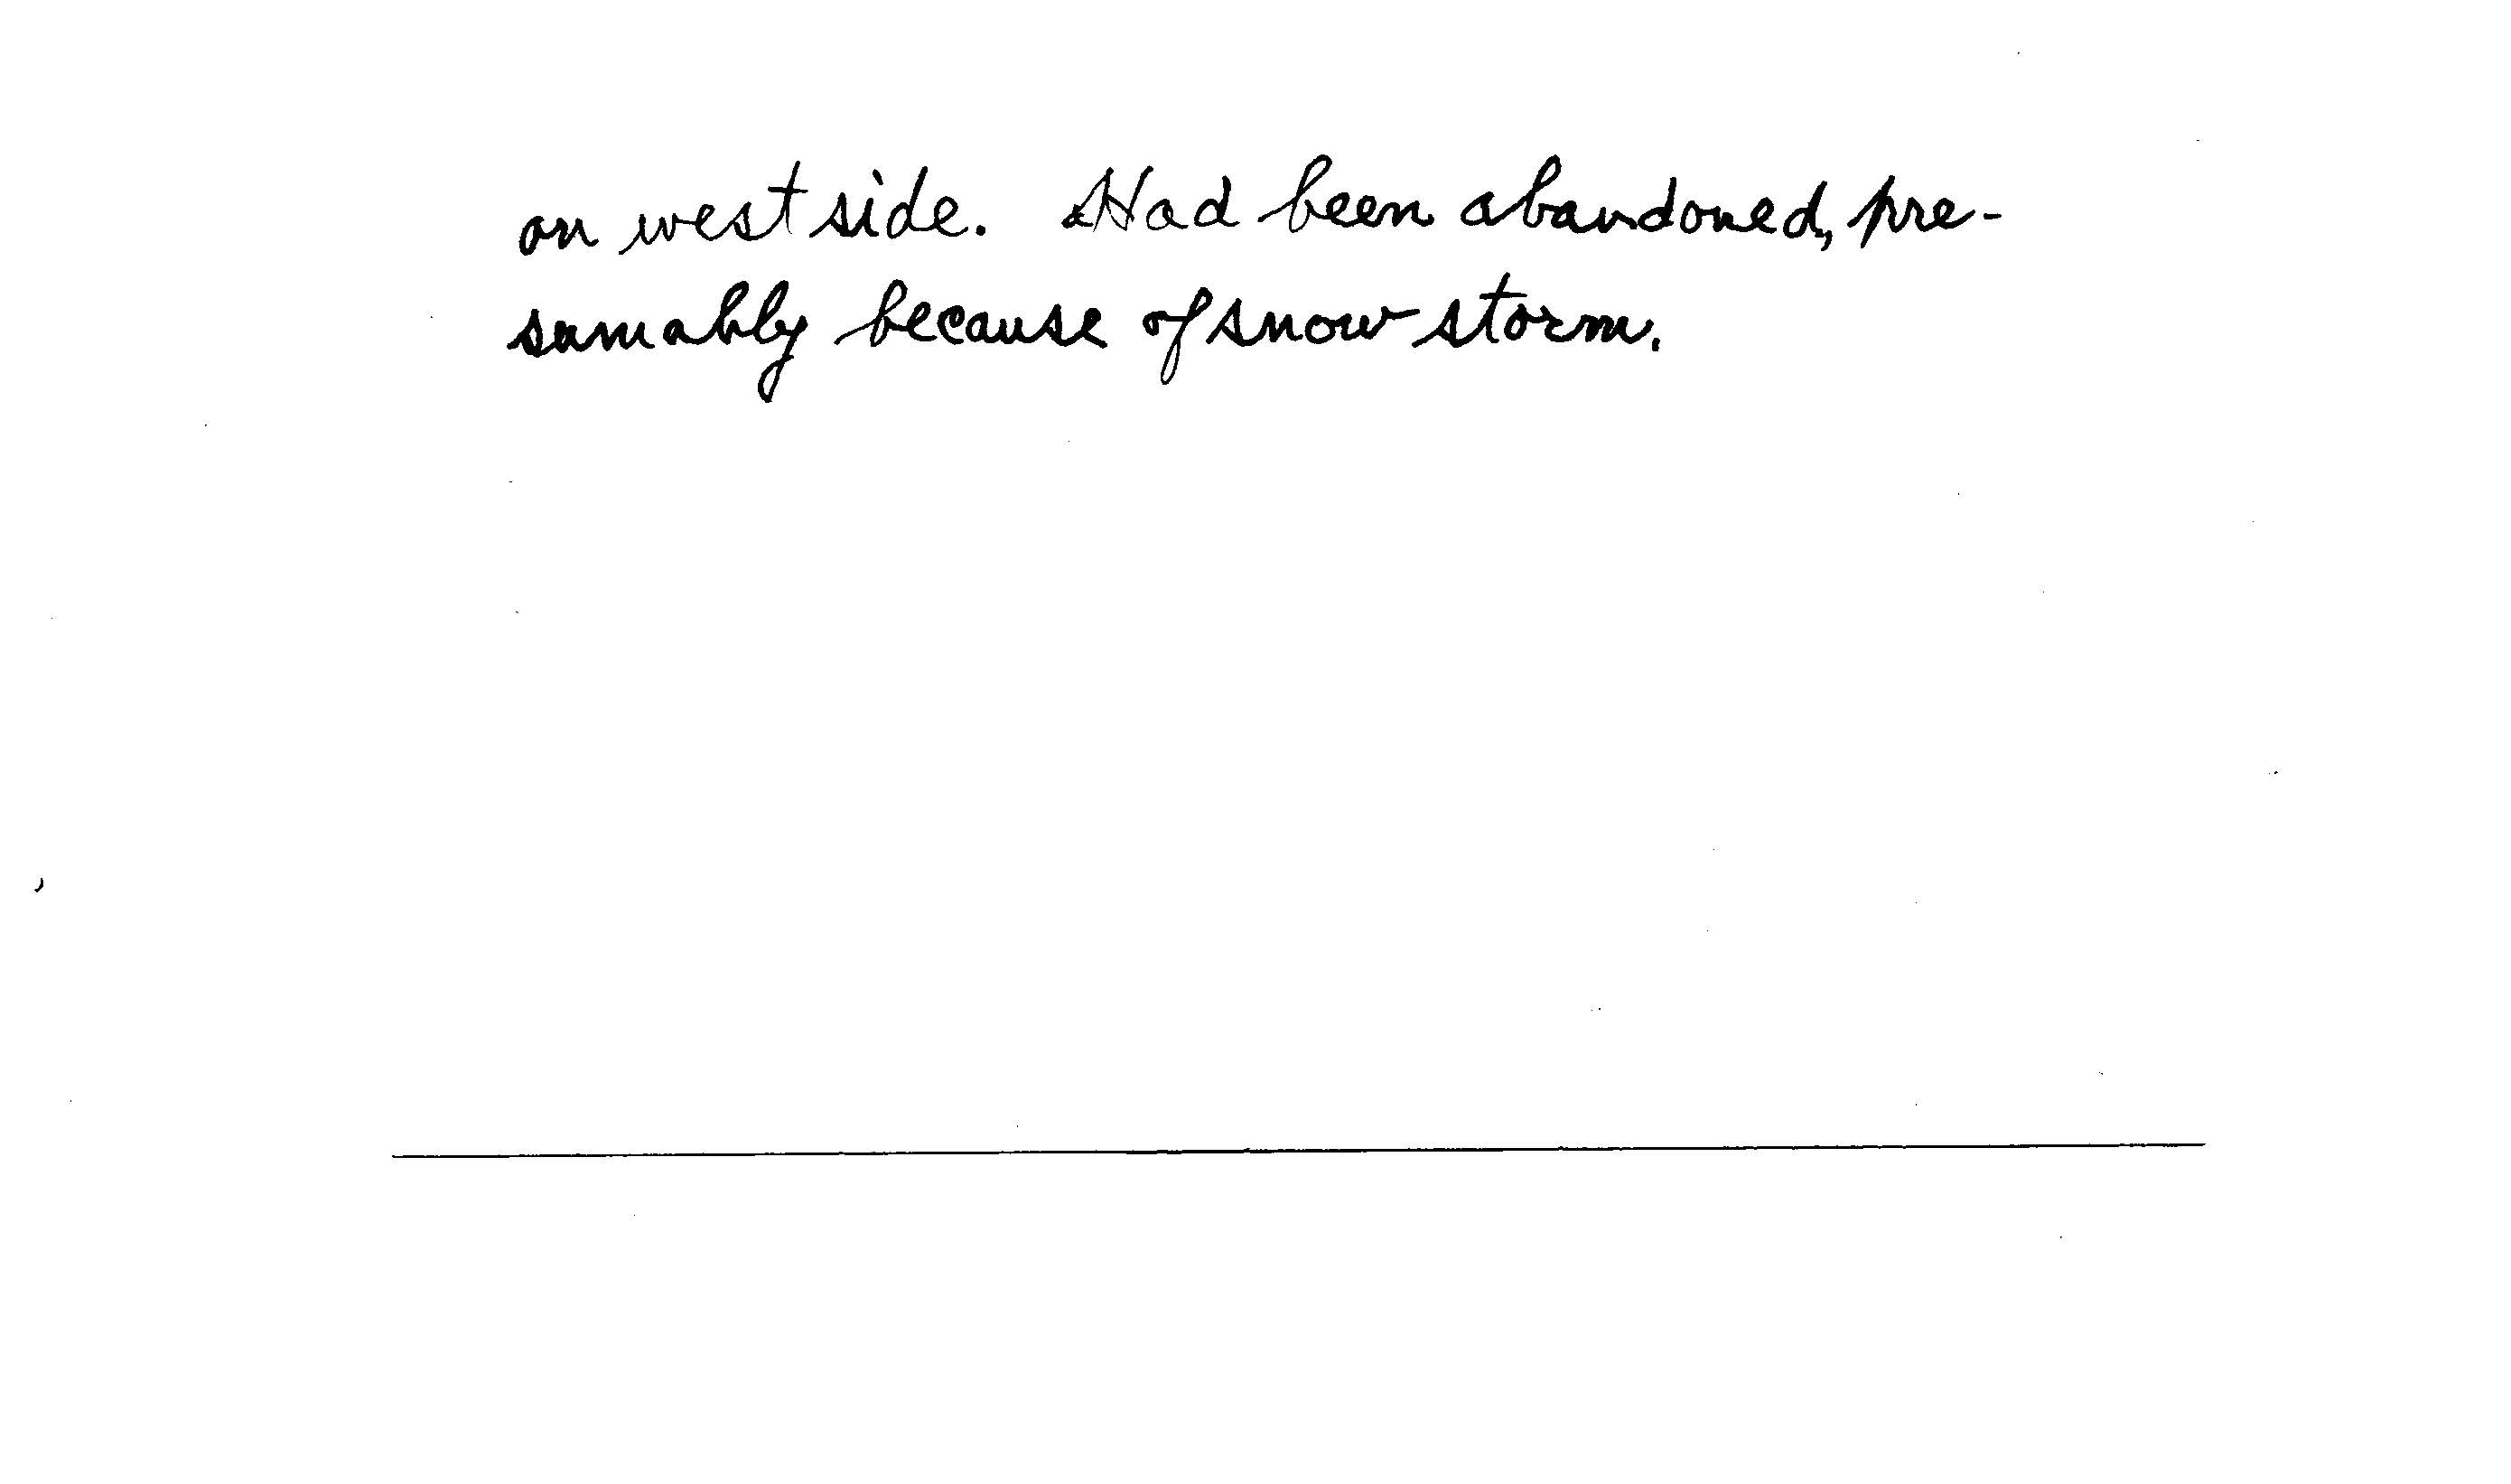 on west side. Had been abandoned, pre-
sumably because of snow storm.